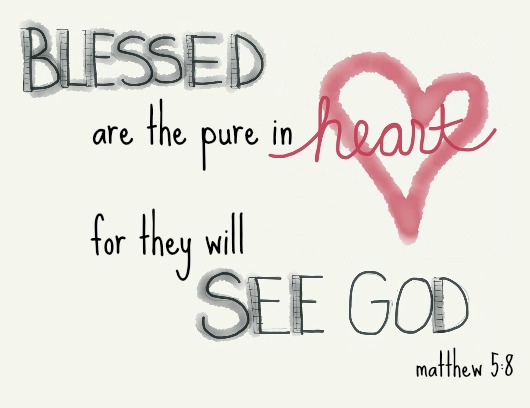 BLESSED
are the pure in heart
for they will
SEE GOD
matthew 5:8